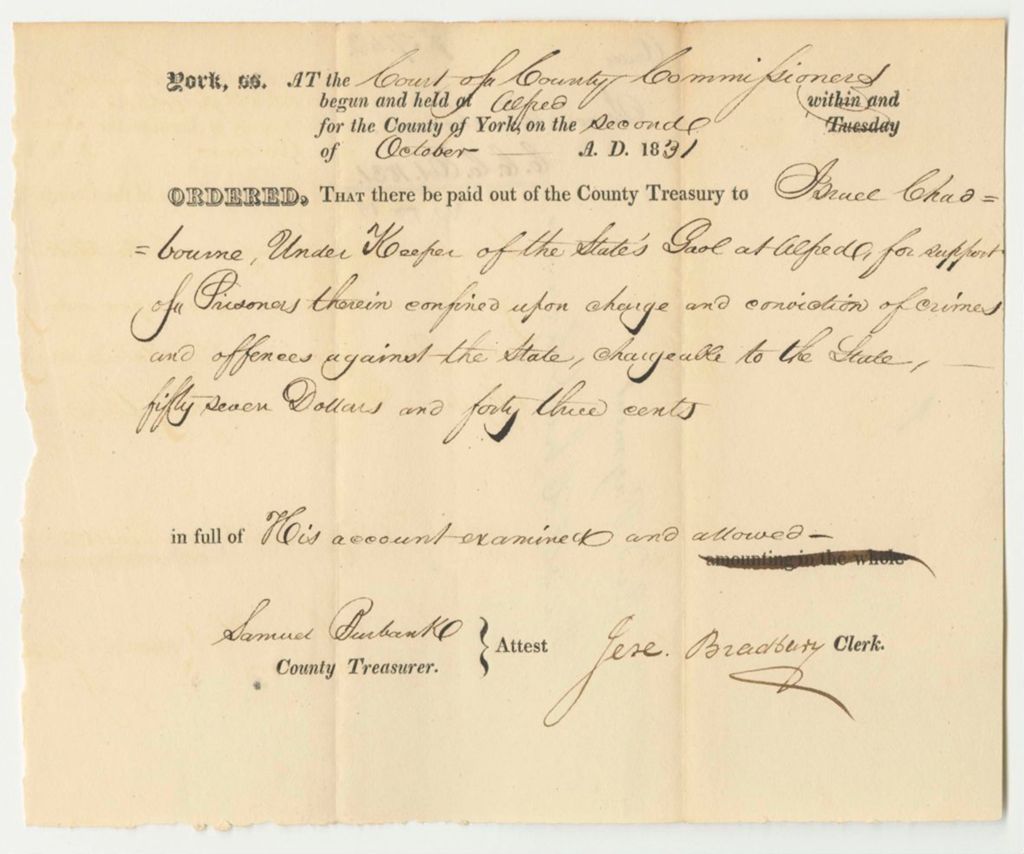 York, ss. AT the Court of County Commissioners
begun and held at Alfred within and
for the County of York, on the second Tuesday
of October — A. D. 1831
ORDERED, THAT there be paid out of the County Treasury to Bruel Chad=
=bourne, Under Keeper of the State's Gaol at Alfred, for support
of Prisoners therein confined upon charge and conviction of crimes
and offences against the State, chargeable to the State, —
fifty seven Dollars and forty three cents
in full of His account examined and allowed —
amounting in the whole
Samuel Burbank
County Treasurer.
} Attest Jere. Bradbury Clerk.